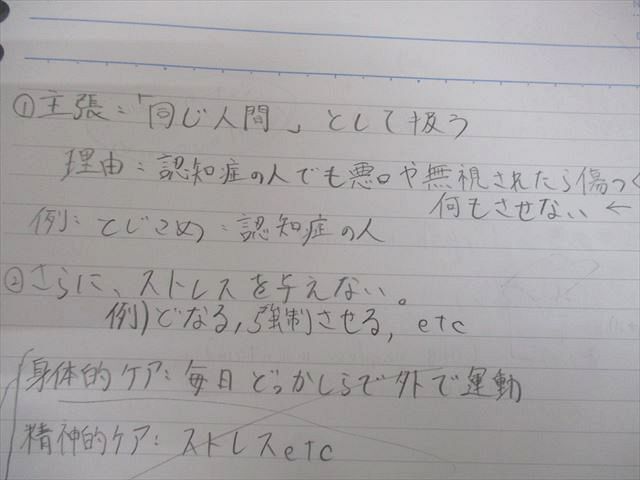 ①主張:「同じ人間」として扱う
理由:認知症の人でも悪口や無視されたら傷つく
何もさせない ←
例:とじこめつ:認知症の人
②さらに、ストレスを与えない。
例)どなる,強制させる, etc
身体的ケア:毎日どっかしらで外で運動
精神的ケア:ストレスetc